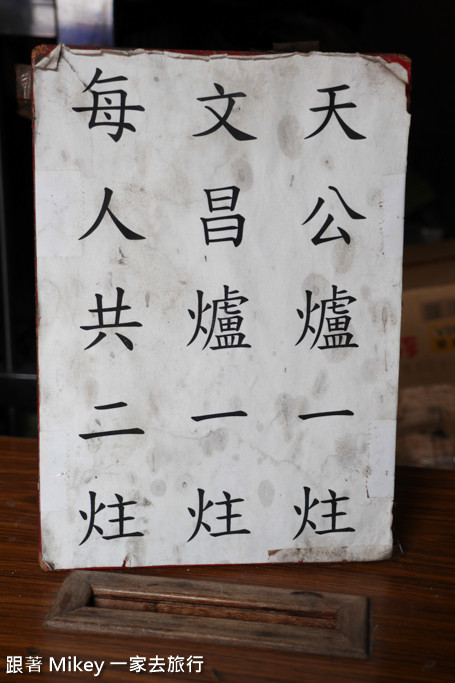 天公爐一炷
文昌爐一炷
每人共二炷
跟著 Mikey 一家去旅行